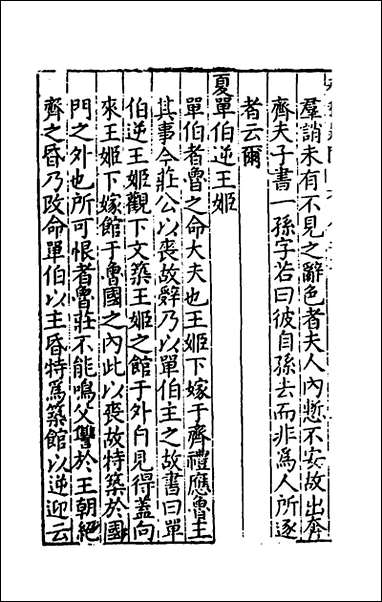 羣誚未有不見之辭色者夫人內慙不安故出奔
齊夫子書一孫字若曰彼自孫去而非爲人所逐
者云爾
夏單伯逆王姬
單伯者魯之命大夫也王姬下嫁于齊禮應魯主
其事今莊公以喪故辭乃以單伯主之故書曰單
伯逆王姬觀下文築王姬之館于外自見得葢向
來王姬下嫁館于魯國之內此以喪故特築於國
門之外也所可恨者魯莊不能鳴父讐於王朝絕
齊之昏乃改命單伯以主昏特爲築館以逆迎云